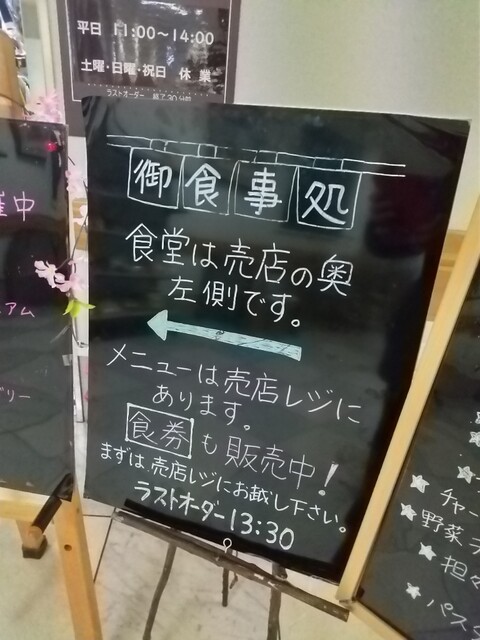 平日 11:00～14:00
土曜・日曜・祝日 休業
ラストオーダー 終了30分前
御食事処
食堂は売店の奥
左側です。
メニューは売店レジに
あります。
食券も販売中!
まずは、売店レジにお越し下さい。
ラストオーダー13:30
催中
アム
リー
チャー
野菜ラ
担々
パス